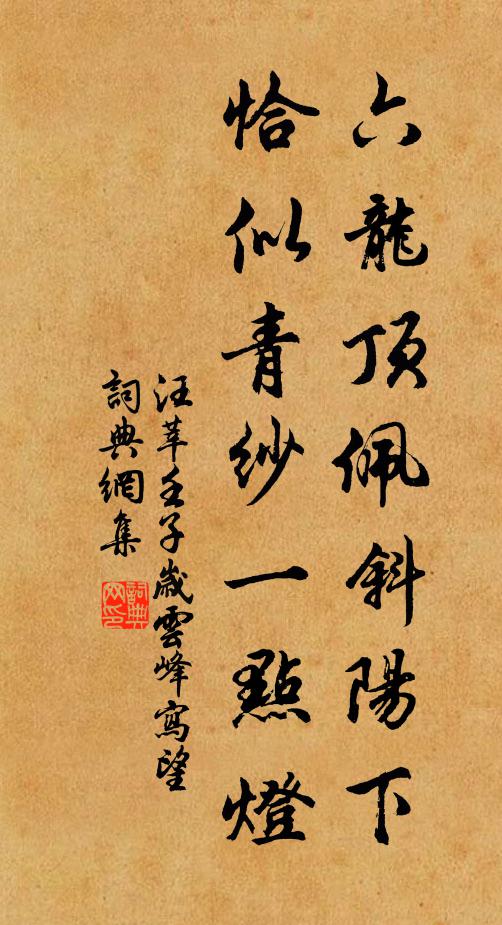 六龍頂佩斜陽下
恰似青紗一點燈
汪莘壬子歲雲峰寫望
詞典網集
詞典
网印